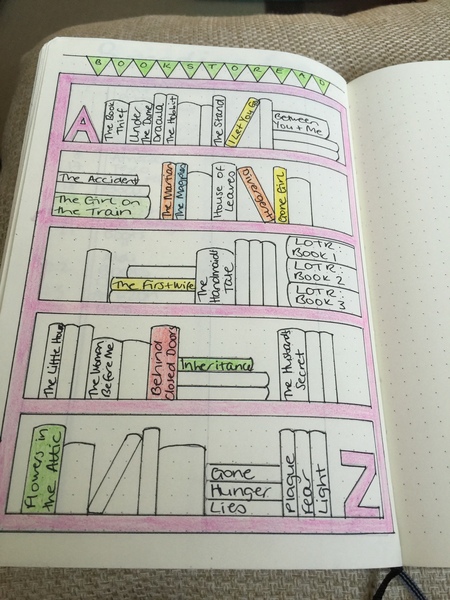 BOOKSTOREAD
A
The Book
Thief
Under
The Dome
Dracula
The Hobbit
The Stand
I Let You Go
Between
You + Me
The Accident
The Girl on
the Train
The Martian
The Magicians
House of
Leaves
Divergent
Gone Girl
The First Wife
The
Handmaids
Tale
LOTR:
BOOK 1
LOTR:
BOOK 2
LOTR:
BOOK 3
The Little House
The Woman
Before Me
Behind
Closed Doors
Inheritance
The Husband's
Secret
Flowers in
the Attic
Gone
Hunger
Lies
Plague
Fear
Light
Z